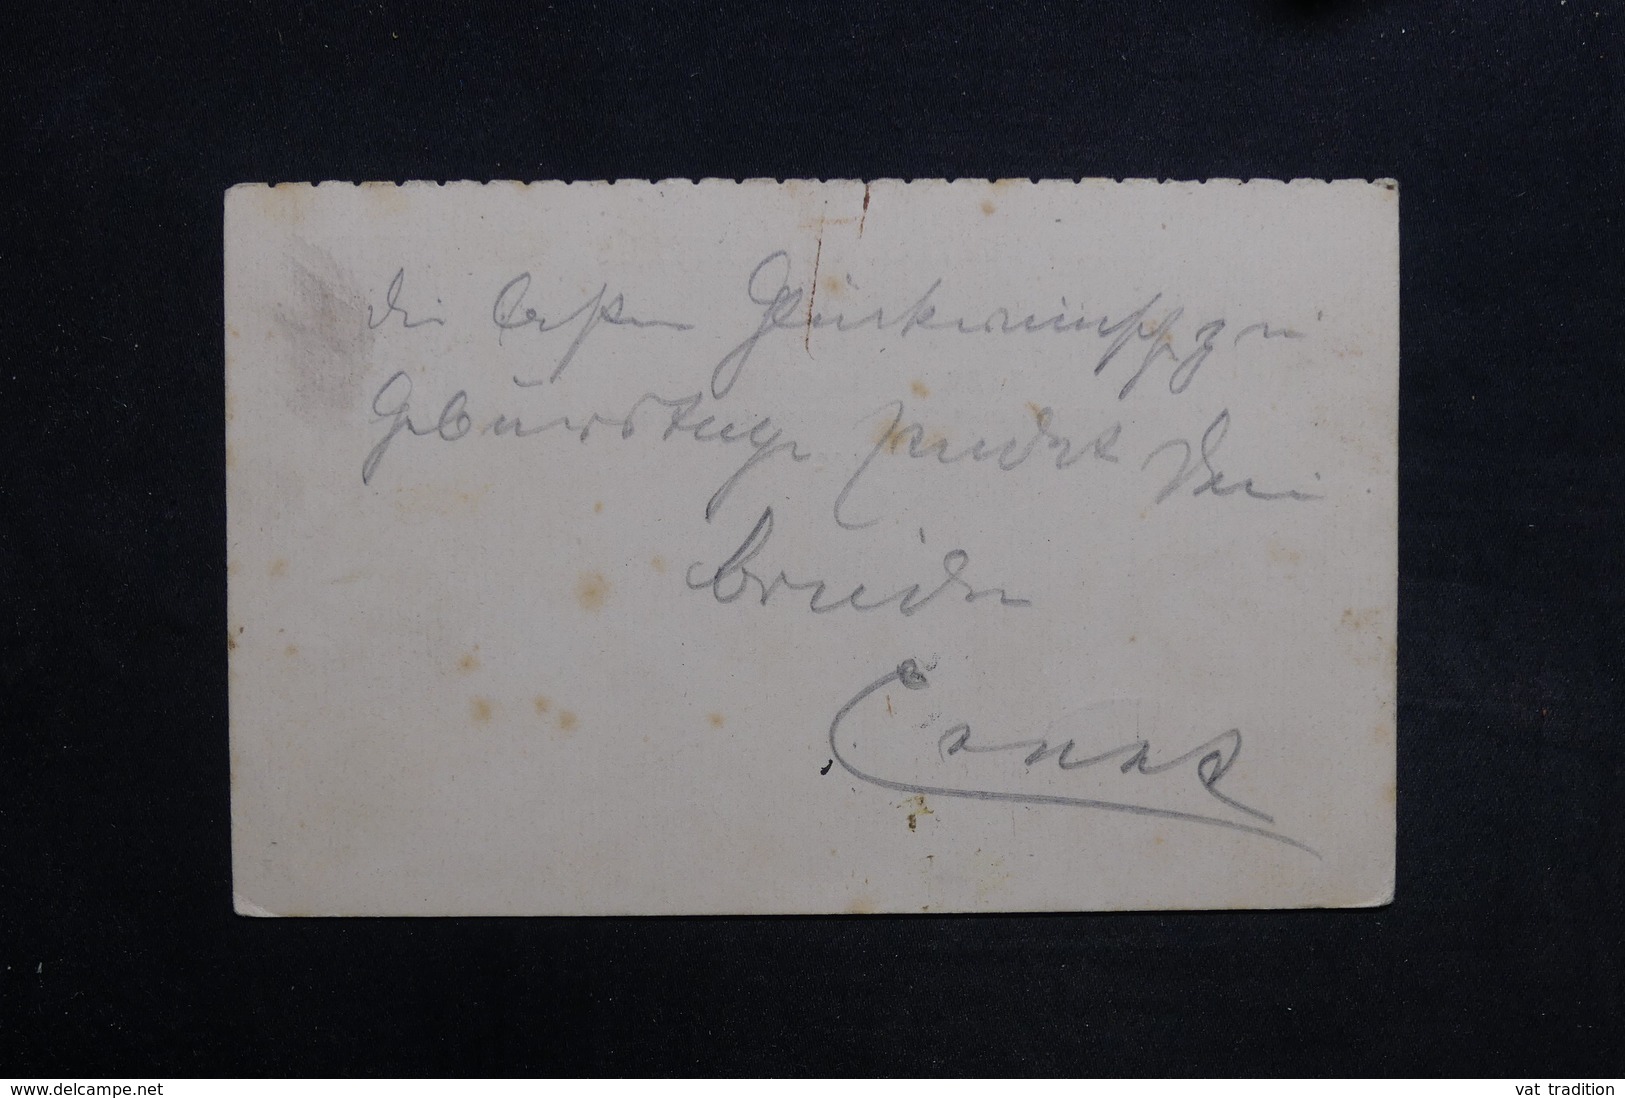 die besten Glückwünsche zu
Geburtstage sendet Dein
Bruder
Ernst
www.delcampe.net
vat_tradition